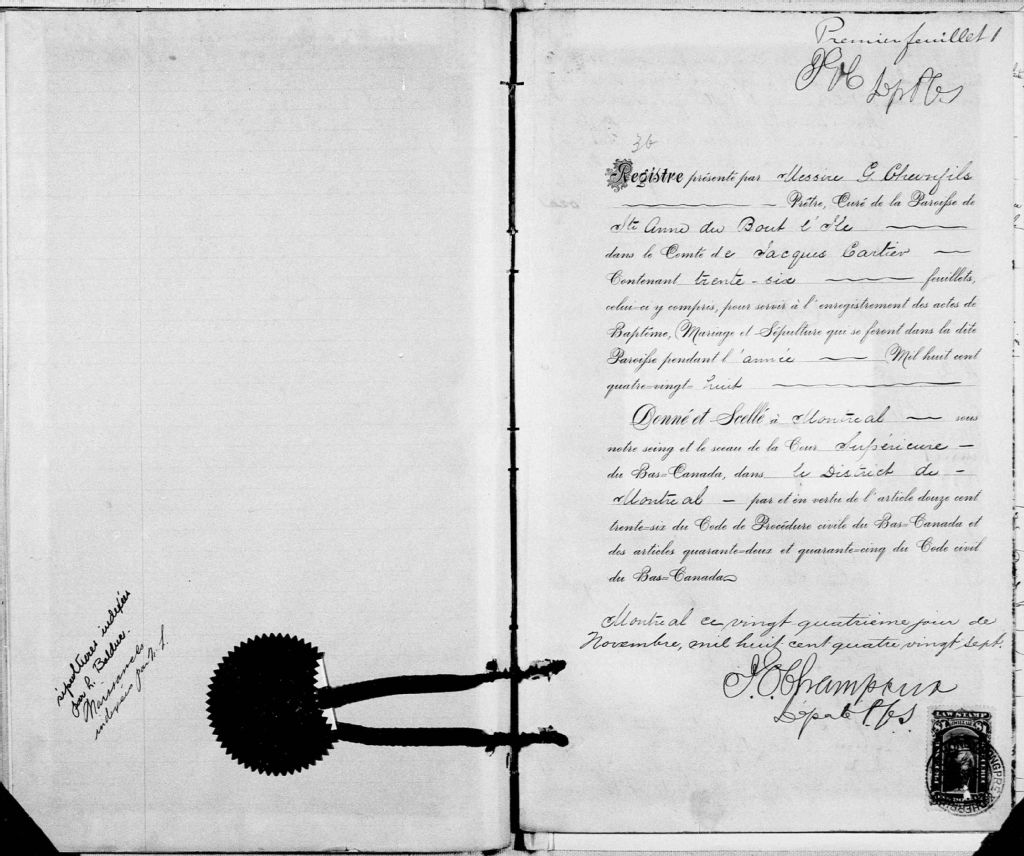 sépultures indexées
par L. Balduc.
Naissances
indexées par
Premier feuillet 1
Dep P C S
36
Registre présenté par Messire G. Chevrefils
Prêtre, Curé de la Paroisse de
Ste Anne du Bout l'Ile
dans le Comté de Jacques Cartier
Contenant trente-six feuillets,
celui-ci y compris, pour servir à l'enregistrement des actes de
Baptême, Mariage et Sépulture qui se feront dans la dite
Paroisse pendant l'année Mil huit cent
quatre-vingt-huit
Donné et Scellé à Montreal sous
notre seing et le sceau de la Cour Supérieure
du Bas-Canada, dans le District de
Montreal par et en vertu de l'article douze cent
trente-six du Code de Procédure civile du Bas-Canada et
des articles quarante-deux et quarante-cinq du Code civil
du Bas-Canada
Montreal ce vingt quatrieme jour de
Novembre, mil huit cent quatre vingt sept.
Champoux
Dépté P.C.S.
LAW STAMP